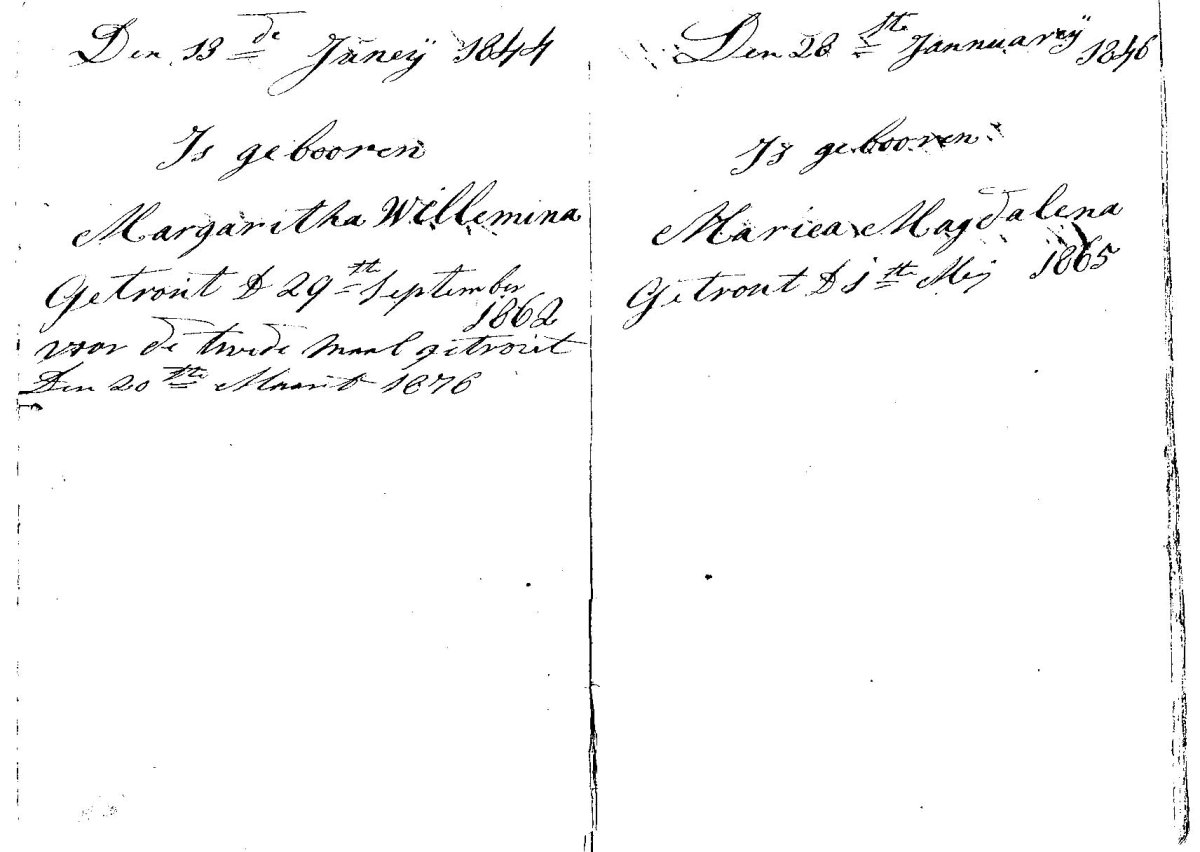 Den 13de Juneÿ 1844
Is gebooren
Margaritha Willemina
Getrout D 29th September
1862
voor de twede maal getrout
Den 20ste Maart 1876
Den 28ste Jannuarÿ 1846
Is gebooren
Mariea Magdalena
Getrout D 1ste Mei 1865